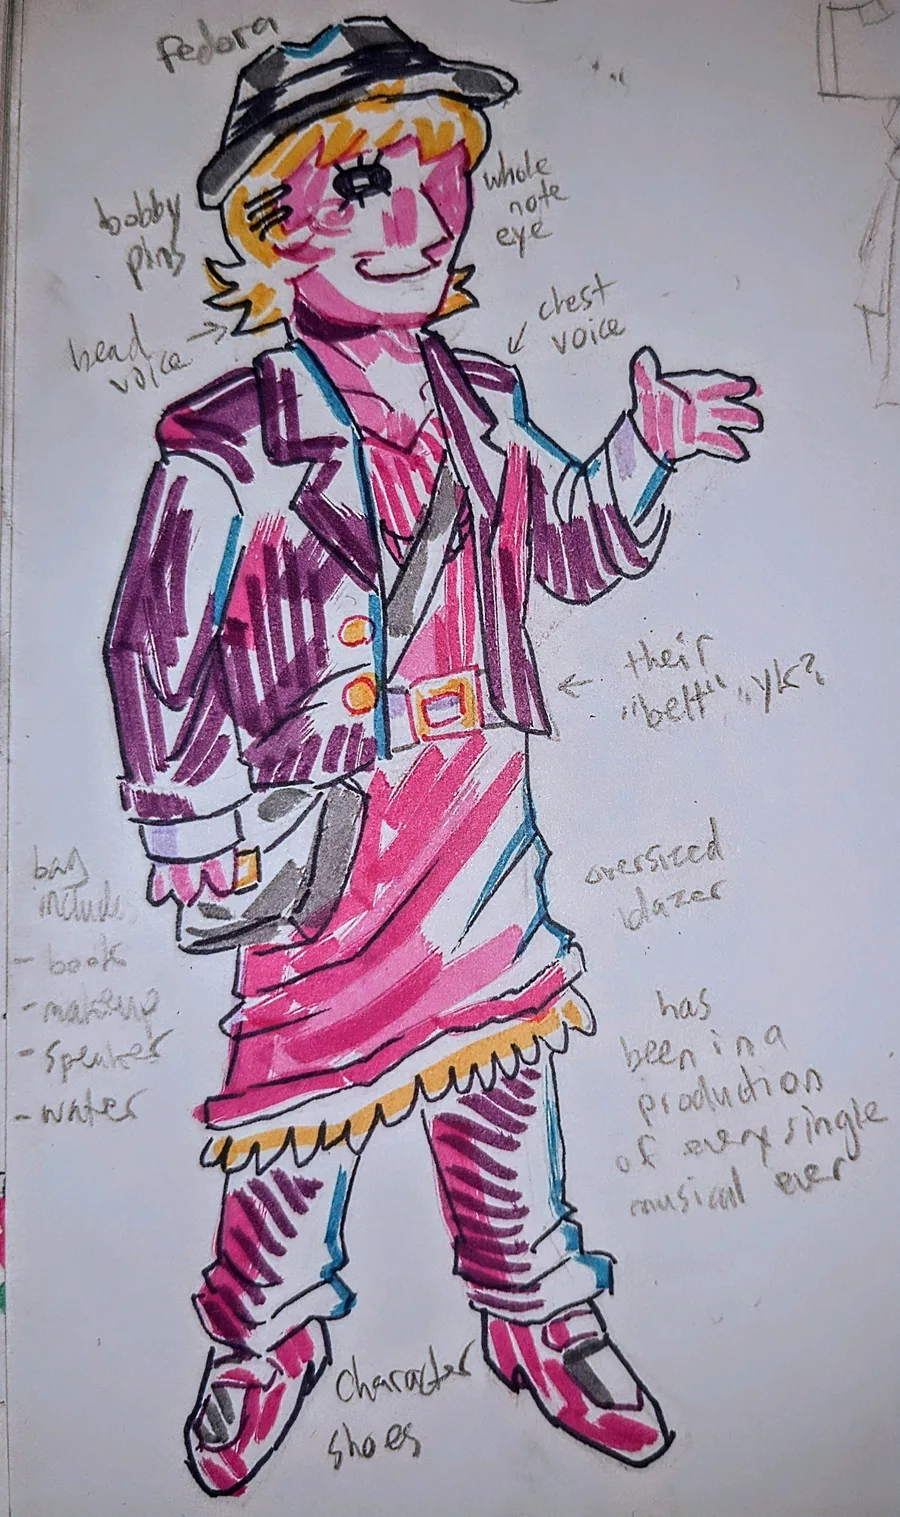 fedora
bobby
pins
whole
note
eye
head
voice
chest
voice
their
"belt" yk?
bag
includ
- book
- makeup
- speaker
- water
oversized
blazer
has
been in a
production
of every single
musical ever
character
shoes